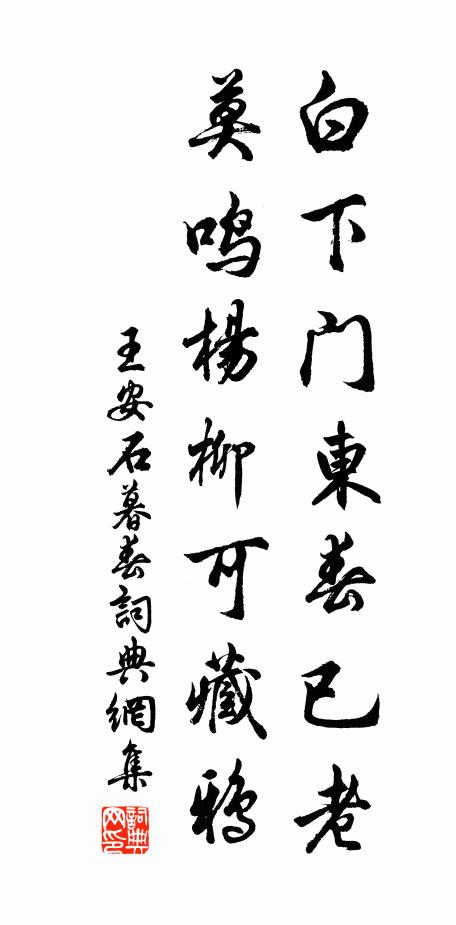 白下門東春已老
莫鳴楊柳可藏鴉
王安石暮春詞典網集
詞典
网印